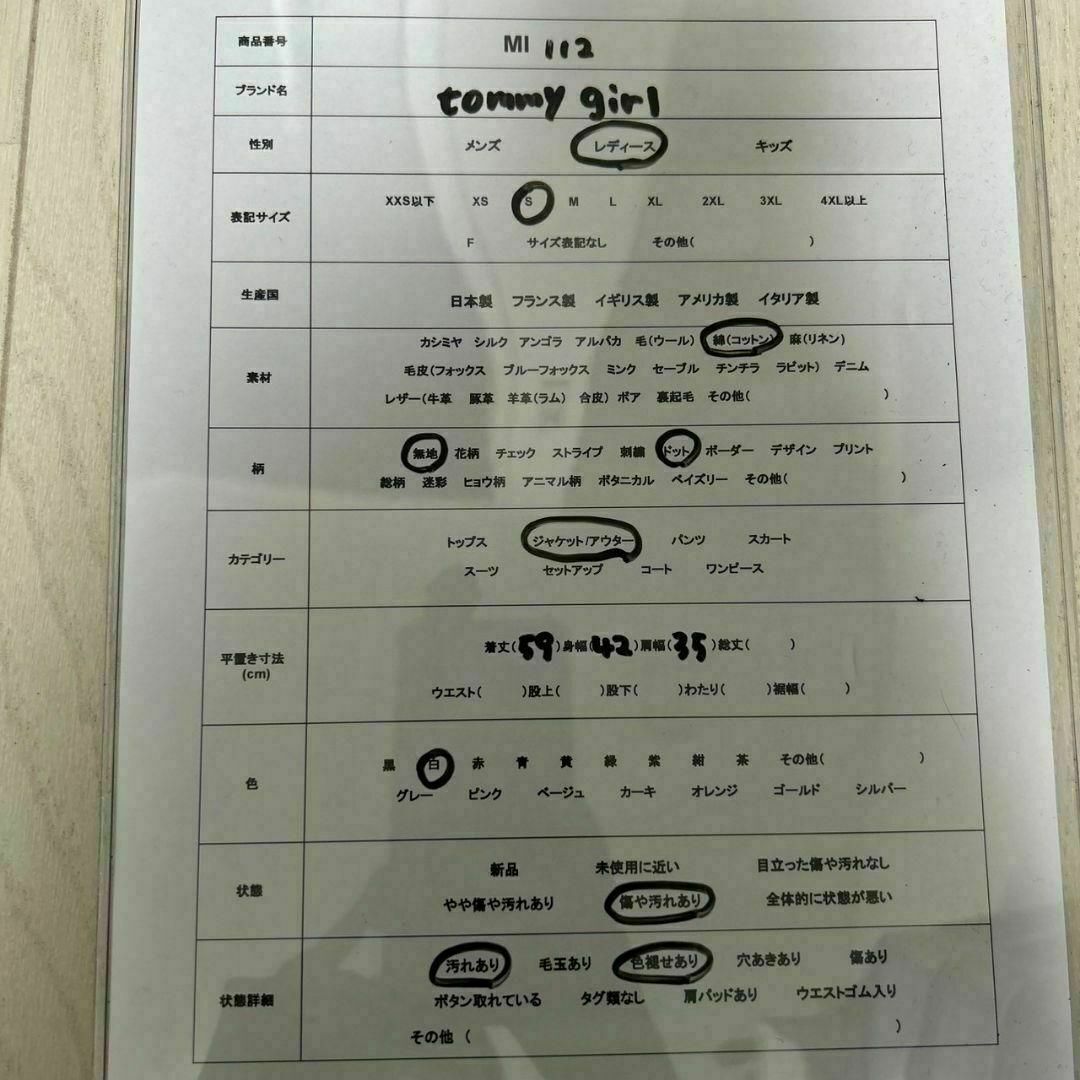 商品番号 MI 112
ブランド名 tommy girl
性別 メンズ レディース キッズ
表記サイズ XXS以下 XS S M L XL 2XL 3XL 4XL以上
F サイズ表記なし その他( )
生産国 日本製 フランス製 イギリス製 アメリカ製 イタリア製
素材 カシミヤ シルク アンゴラ アルパカ 毛(ウール) 綿(コットン) 麻(リネン)
毛皮(フォックス ブルーフォックス ミンク セーブル チンチラ ラビット) デニム
レザー(牛革 豚革 羊革(ラム) 合皮) ボア 裏起毛 その他( )
柄 無地 花柄 チェック ストライプ 刺繍 ドット ボーダー デザイン プリント
総柄 迷彩 ヒョウ柄 アニマル柄 ボタニカル ペイズリー その他( )
カテゴリー トップス ジャケット/アウター パンツ スカート
スーツ セットアップ コート ワンピース
平置き寸法 (cm) 着丈(59)身幅(42)肩幅(35)総丈( )
ウエスト( )股上( )股下( )わたり( )裾幅( )
色 黒 白 赤 青 黄 緑 紫 紺 茶 その他( )
グレー ピンク ベージュ カーキ オレンジ ゴールド シルバー
状態 新品 未使用に近い 目立った傷や汚れなし
やや傷や汚れあり 傷や汚れあり 全体的に状態が悪い
状態詳細 汚れあり 毛玉あり 色褪せあり 穴あきあり 傷あり
ボタン取れている タグ類なし 肩パッドあり ウエストゴム入り
その他 ( )